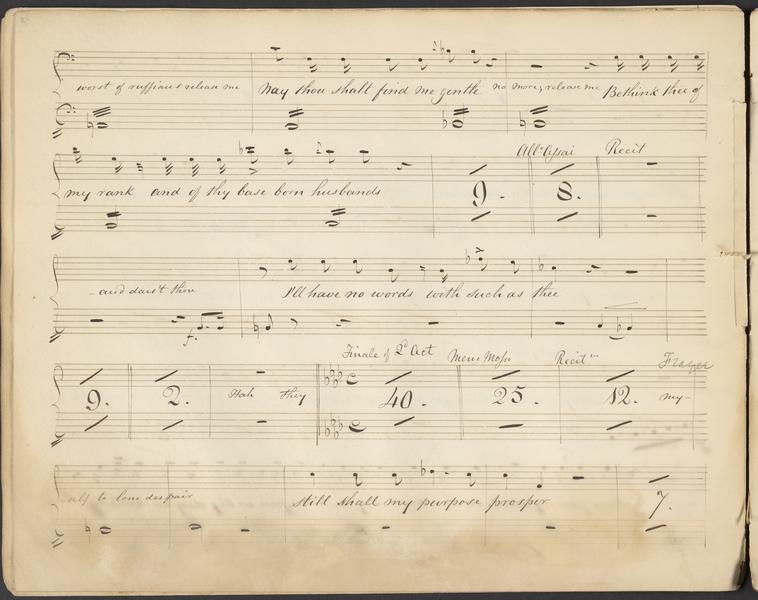 worst of ruffians release me Nay thou shalt find me gentle no more, release me Bethink thee of
All.° Assai Recit
my rank and of thy base born husbands 9. 8.
and dar'st thou I'll have no words with such as thee
f.
Finale of 2.d Act Meno Mosso Recit.vo Frazer
9. 2. Hah they 40. 25. 12. my-
self to lone despair still shall my purpose prosper 7.